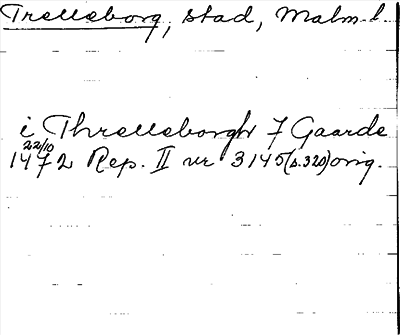 Trelleborg, stad, Malm. l.
i Threlleborgh 7 Gaarde
22/10
1472 Rep. II nr 3145 (s. 320) orig.